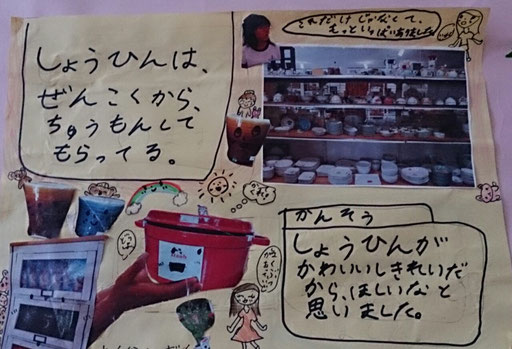 これだけじゃなくて、
もっといっぱいありました。
しょうひんは、
ぜんこくから、
ちゅうもんして
もらってる。
かんそう
しょうひんが
かわいいしきれいだ
から、ほしいなと
思いました。